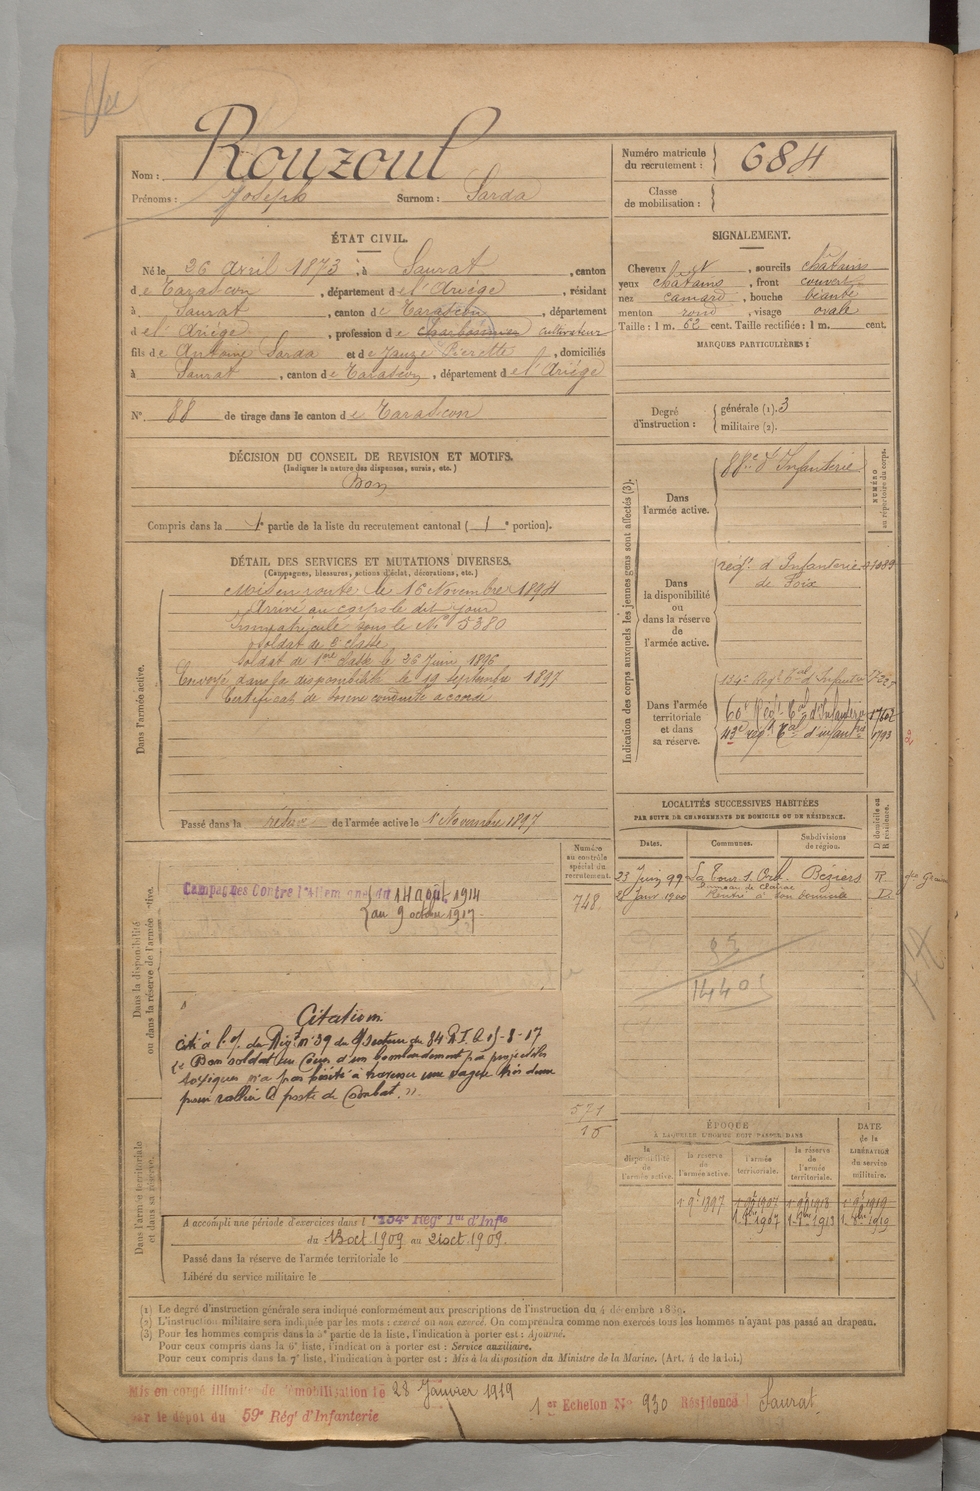 Vu
Nom : Rouzoul
Prénoms : Joseph Surnom : Sarda
Numéro matricule
du recrutement : 684
Classe
de mobilisation :
ÉTAT CIVIL.
Né le 26 avril 1873, à Saurat, canton
de Tarascon, département de l'Ariège, résidant
à Saurat, canton de Tarascon, département
de l'Ariège, profession de cultivateur
fils de Antoine Sarda et de Jauze Pierette, domiciliés
à Saurat, canton de Tarascon, département de l'Ariège
N° 88 de tirage dans le canton de Tarascon
SIGNALEMENT.
Cheveux, sourcils châtains
yeux châtains, front couvert
nez camard, bouche béante
menton rond, visage ovale
Taille : 1 m. 62 cent. Taille rectifiée : 1 m. cent.
MARQUES PARTICULIÈRES :
Degré
d'instruction :
générale (1). 3
militaire (2).
DÉCISION DU CONSEIL DE REVISION ET MOTIFS.
(Indiquer la nature des dispenses, sursis, etc.)
Bon
Compris dans la 1e partie de la liste du recrutement cantonal ( 1 e portion).
DÉTAIL DES SERVICES ET MUTATIONS DIVERSES.
(Campagnes, blessures, actions d'éclat, décorations, etc.)
Dans l'armée active.
Mis en route le 16 Novembre 1894
Arrivé au corps le dit jour
Immatriculé sous le N° 5380
Soldat de 2e classe
Soldat de 1ère classe le 26 Juin 1896
Envoyé dans la disponibilité le 19 septembre 1897
Certificat de bonne conduite accordé
Passé dans la réserve de l'armée active le 1er Novembre 1897
Indication des corps auxquels les jeunes gens sont affectés (3).
NUMÉRO
au répertoire du corps.
Dans
l'armée active.
88e d'Infanterie
Dans
la disponibilité
ou
dans la réserve
de
l'armée active.
régt d'Infanterie
de Foix
Dans l'armée
territoriale
et dans
sa réserve.
134e Régt Tal d'Infanterie
60e Régt Tal d'Infanterie
43e régt Tal d'infanrie 6793
LOCALITÉS SUCCESSIVES HABITÉES
PAR SUITE DE CHANGEMENTS DE DOMICILE OU DE RÉSIDENCE.
Dates.
Communes.
Subdivisions
de région.
D. domicile ou
R. résidence.
23 Juin 99 La Tour s. Orb. Béziers R
28 Janv 1900 Rentré à son domicile
Numéro
au contrôle
spécial du
recrutement.
748
Dans la disponibilité
ou dans la réserve de l'armée active.
Campagnes Contre l'Allemagne du 14 août 1914
au 9 octobre 1917
25
14401
Citation
Cité à l'o/ du Régt n° 39 du
"Bon soldat au Cours d'un bombardement par projectiles
toxiques n'a pas hésité à traverser une vague très dense
pour rallier le poste de Combat."
571
15
Dans l'armée territoriale
et dans sa réserve.
A accompli une période d'exercices dans l 134e Régt Tal d'Infie
du 13 oct. 1909 au 21 oct. 1909.
Passé dans la réserve de l'armée territoriale le
Libéré du service militaire le
ÉPOQUE
À LAQUELLE L'HOMME DOIT PASSER DANS
la
disponibilité
de
l'armée active.
la réserve
de
l'armée active.
l'armée
territoriale.
la réserve
de
l'armée
territoriale.
DATE
de la
LIBÉRATION
du service
militaire.
1 9bre 1897 1 9bre 1907 1 9bre 1913 1 9bre 1919
1 8bre 1907 1 8bre 1913 1 8bre 1919
(1) Le degré d'instruction générale sera indiqué conformément aux prescriptions de l'instruction du 4 décembre 1889.
(2) L'instruction militaire sera indiquée par les mots : exercé ou non exercé. On comprendra comme non exercés tous les hommes n'ayant pas passé au drapeau.
(3) Pour les hommes compris dans la 5e partie de la liste, l'indication à porter est : Ajourné.
Pour ceux compris dans la 6e liste, l'indication à porter est : Service auxiliaire.
Pour ceux compris dans la 7e liste, l'indication à porter est : Mis à la disposition du Ministre de la Marine. (Art. 4 de la loi.)
Mis en congé illimité de démobilisation le 28 Janvier 1919
par le dépôt du 59e Régt d'Infanterie
1er Echelon N° 930 Résidence Saurat